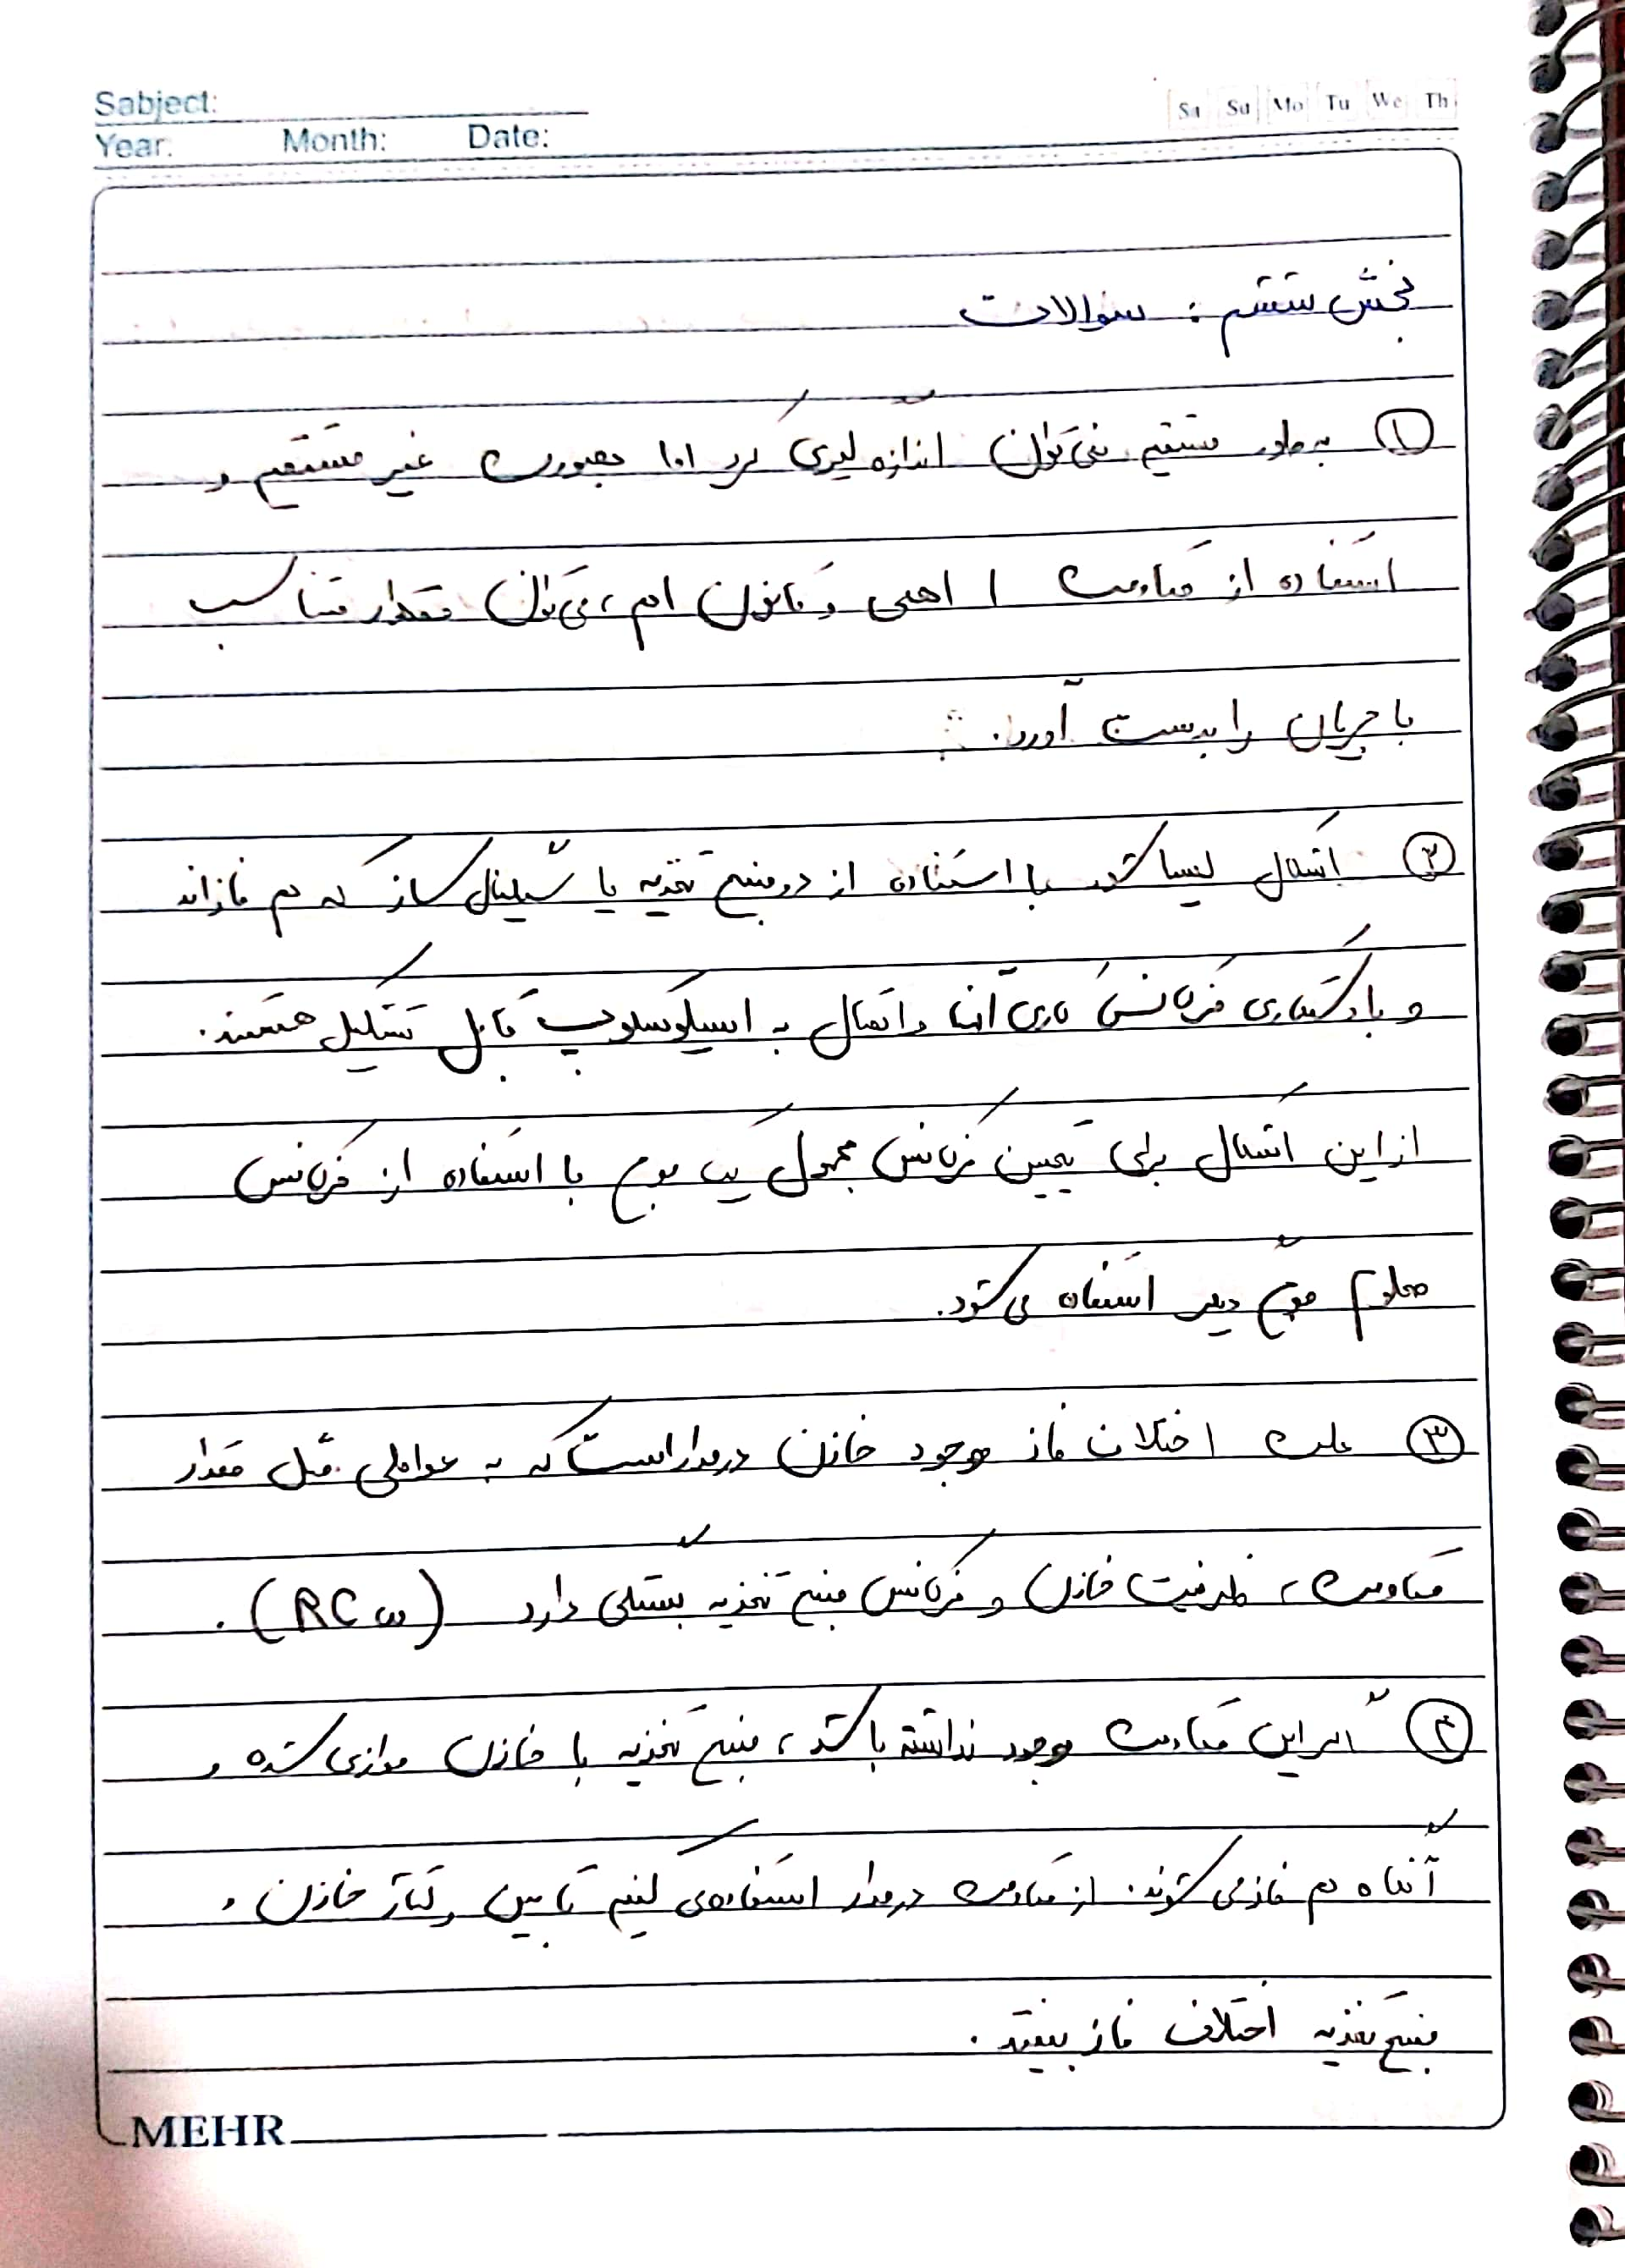 Sabject:
Year:   Month:   Date:
Sa Su Mo Tu We Th
بخش ششم : سوالات
① به طور مستقیم نمی‌توان اندازه گیری کرد اما بصورت غیر مستقیم و
استفاده از مقاومت ۱ اهمی و قانون اهم، می‌توان مقدار متناسب
با جریان را بدست آورد.
② اشکال لیساژور با استفاده از دو منبع تغذیه یا سیگنال ساز که هم فازاند
و با دستکاری فرکانس های آنها و اتصال به اسیلوسکوپ قابل تشکیل هستند.
از این اشکال برای تعیین فرکانس مجهول یک موج با استفاده از فرکانس
معلوم موج دیگر استفاده می‌شود.
③ علت اختلاف فاز وجود خازن در مدار است که به عواملی مثل مقدار
مقاومت، ظرفیت خازن و فرکانس منبع تغذیه بستگی دارد (RCω).
④ اگر این مقاومت وجود نداشته باشد، منبع تغذیه با خازن موازی شده و
آنگاه هم فاز می شوند. از مقاومت در مدار استفاده می کنیم تا بین رفتار خازن و
منبع تغذیه اختلاف فاز بیفتد.
MEHR